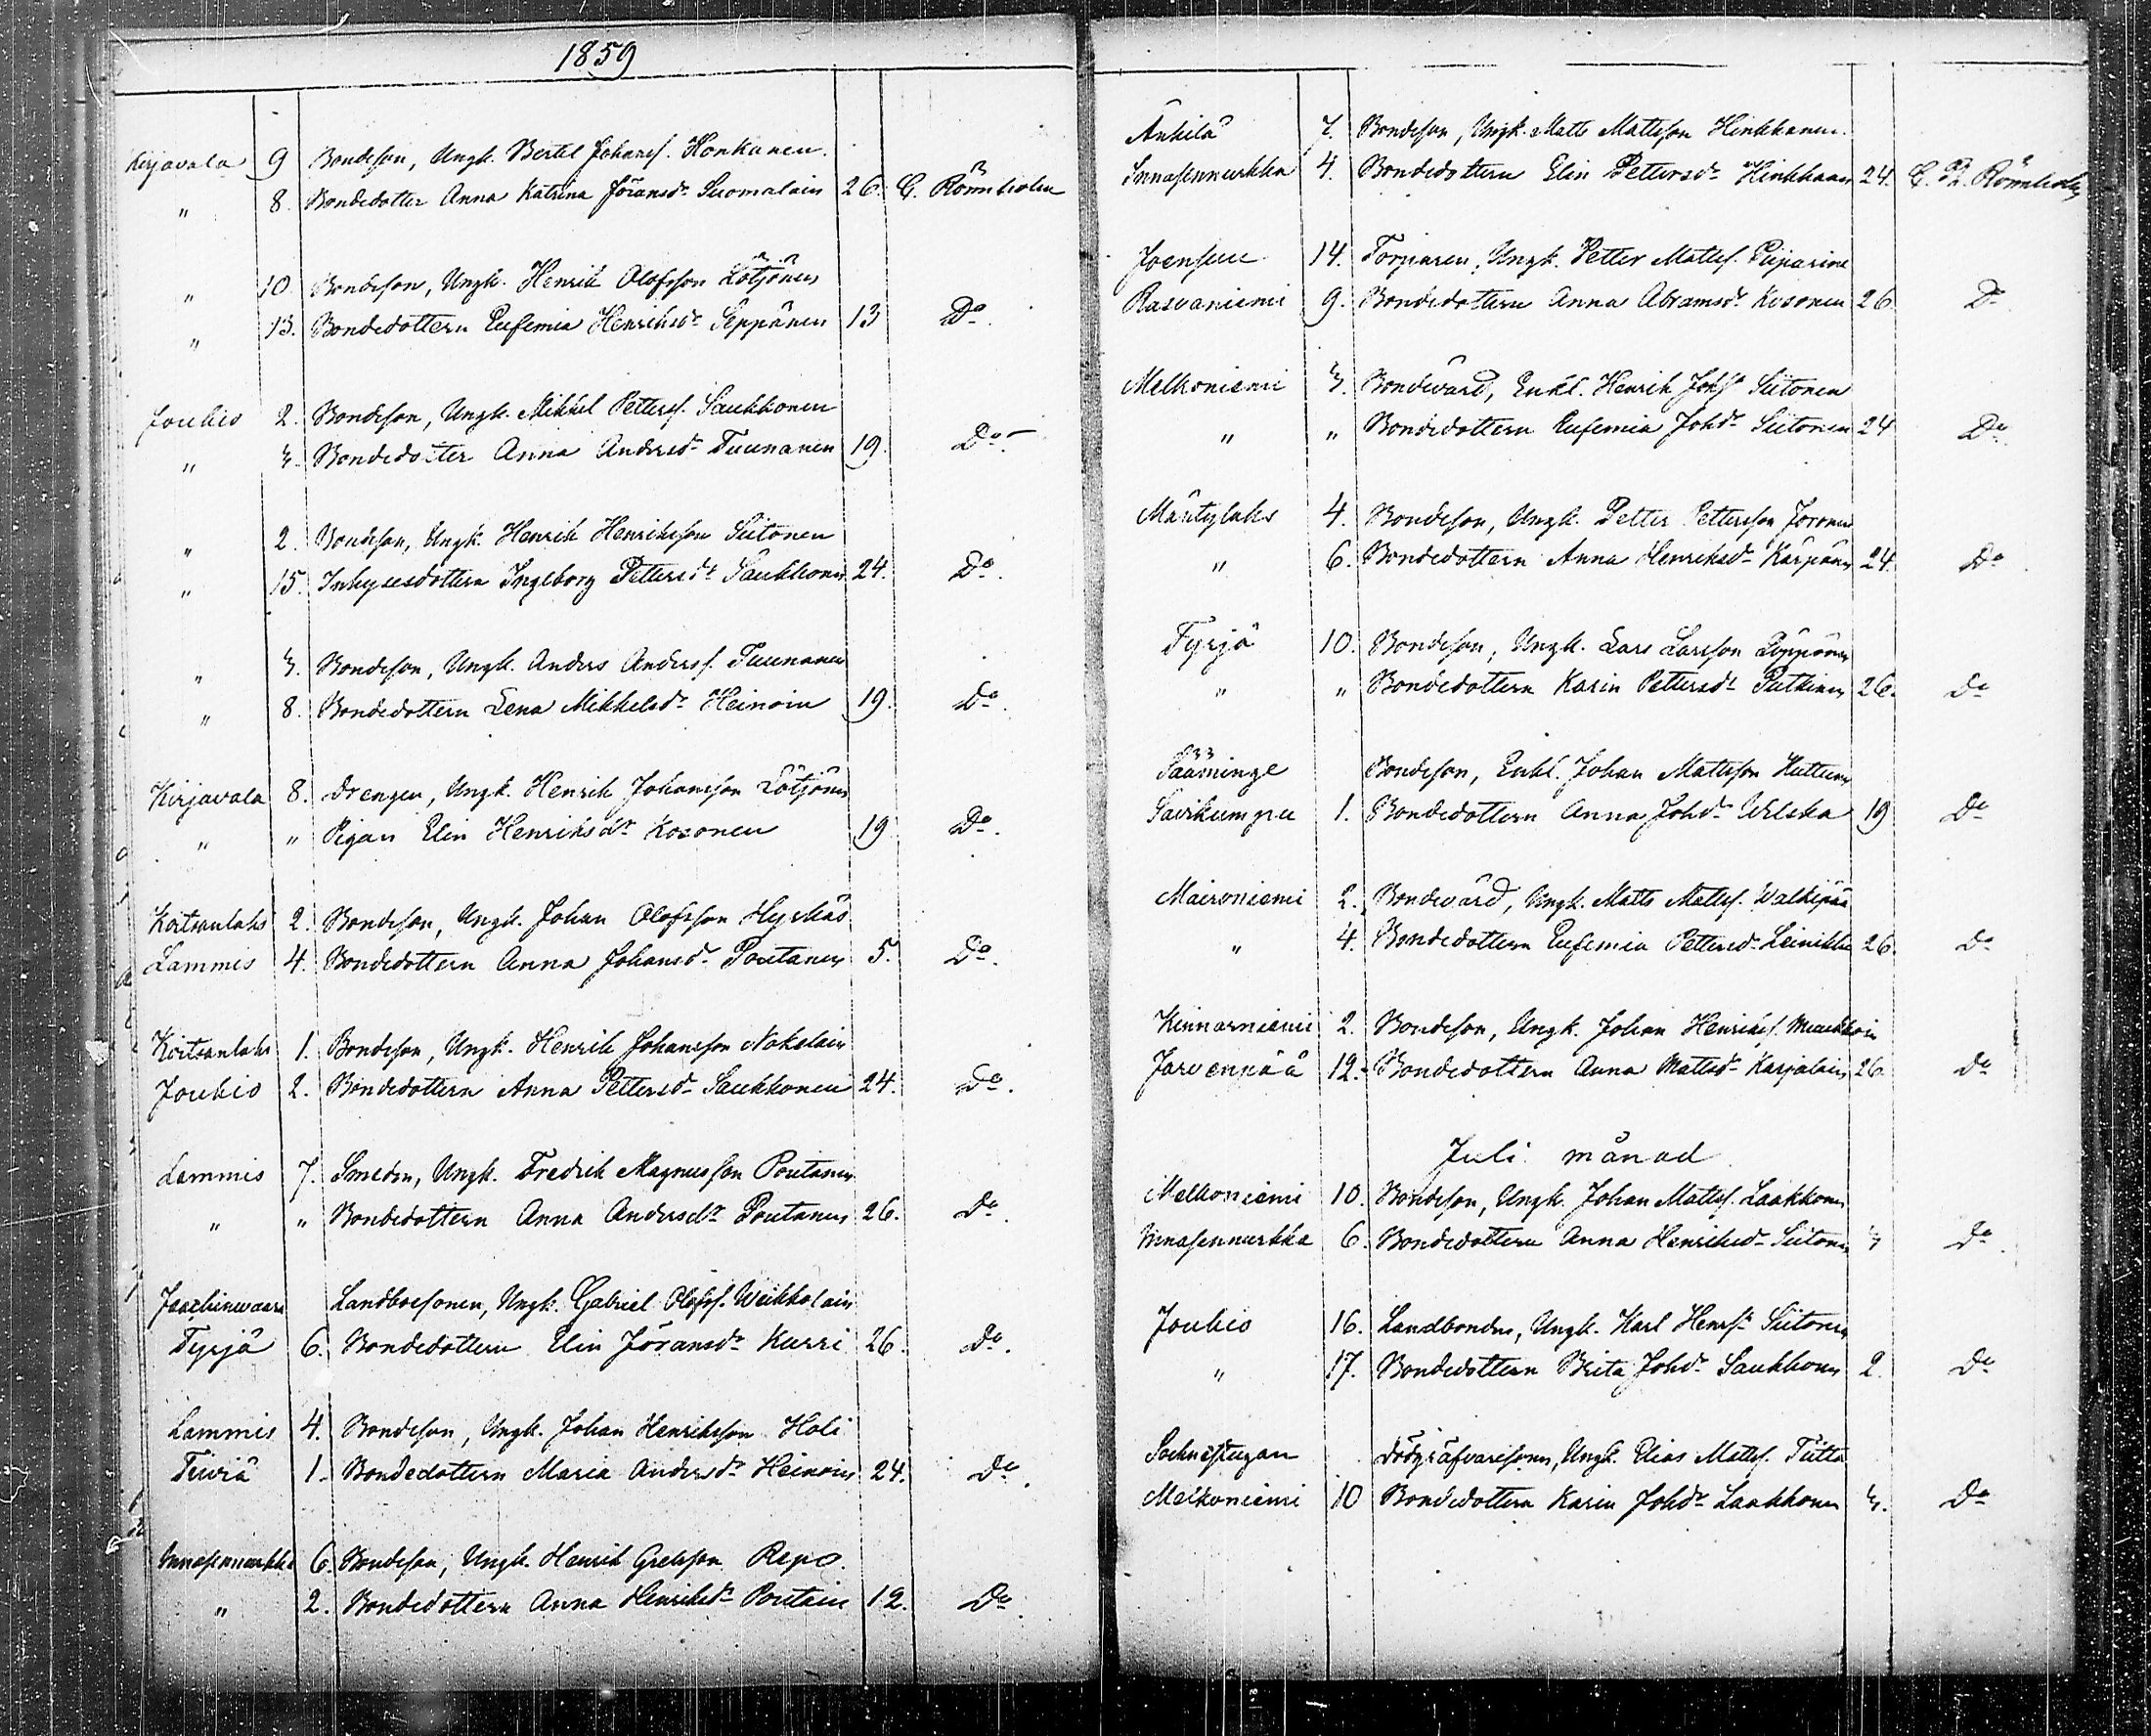 1859
Kirjavala 9 Bondeson, Ungk. Bertel Johansf. Honkanen.
" 8. Bondedotter Anna Katrina Göransdr Suomalain 26. C. Rönnholm
" 10. Bondeson, Ungk. Henrik Olofsson Lötjönen
" 13. Bondedottern Eufemia Henriksdr Seppänen 13 Do.
Joukio 2. Bondeson, Ungk. Mikkel Pettersf. Saukkonen
" 3. Bondedotter Anna Andersdr Tuunanen 19. Do.
" 2. Bondeson, Ungk. Henrik Henriksson Siitonen
" 15. Inhysesdottern Ingeborg Pettersdr Saukkonen 24. Do.
" 3. Bondeson, Ungk. Anders Andersf. Tuunanen
" 8. Bondedottern Lena Mikkelsdr Heinoin 19. Do.
Kirjavala 8. Drengen, Ungk. Henrik Johansson Lötjönen
" " Pigan Elin Henriksdr Kosonen 19 Do.
Koitsanlahs 2. Bondeson, Ungk. Johan Olofsson Hyrkäs
Lammis 4. Bondedottern Anna Johansdr Poutanen 5. Do.
Koitsanlahs 1. Bondeson, Ungk. Henrik Johansson Nokelain
Joukio 2. Bondedottern Anna Pettersdr Saukkonen 24. Do.
Lammis 7. Smeden, Ungk. Fredrik Magnusson Poutanen
" " Bondedottern Anna Andersdr Poutanen 26. Do
Landboesonen, Ungk. Gabriel Olofsf. Weikkolain
Tyrjä 6. Bondedottern Elin Göransdr Kurri 26. Do.
Lammis 4. Bondeson, Ungk. Johan Henriksson Holi
Tiuriä 1. Bondedottern Maria Andersdr Heinoin 24. Do.
Innasennurkka 6. Bondeson, Ungk. Henrik Grelsson Repo.
" 2. Bondedottern Anna Henriksdr Poutain 12. Do
Änkilä 7. Bondeson, Ungk. Matts Mattsson Hinkkanen.
Innasennurkka 4. Bondedottern Elin Pettersdr Hinkkanen 24. C. Rönnholm
Joensuu 14. Torparen, Ungk. Petter Mattsf. Piiparine
Rasvaniemi 9. Bondedottern Anna Abramsdr Kosonen 26. Do
Melkoniemi 3. Bondevärd, Enkl. Henrik Johsn Siitonen
" " Bondedottern Eufemia Johdr Siitonen 24 Do
Mäntylahs 4. Bondeson, Ungk. Petter Pettersson Joronen
" 6. Bondedottern Anna Henriksdr Kärpänen 24. Do
Tyrjä 10. Bondeson, Ungk. Lars Larsson Löppönen
" " Bondedottern Karin Pettersdr Putkinen 26. Do
Sääminge Bondeson, Enkl. Johan Mattsson Kuttunen
Savikumpu 1. Bondedottern Anna Johdr Urlska 19 Do
Maironiemi 2. Bondevärd, Ungk. Matts Mattsf. Walkipää
" 4. Bondedottern Eufemia Pettersdr Leinikka 26. Do
Kinnarniemi 2. Bondeson, Ungk. Johan Henriksf.
Järvenpää 12. Bondedottern Anna Mattsdr Karjalain 26. Do
Juli månad
Melkoniemi 10. Bondeson, Ungk. Johan Mattsf. Laakkonen
Innasennurkka 6. Bondedottern Anna Henriksdr Siitonen 3 Do
Joukio 16. Landbonden, Ungk. Karl Henrsn Siitonen
" 17. Bondedottern Brita Johdr Saukkonen 2. Do
Socknestugan Dödgräfvaresonen, Ungk. Elias Mattsf. Tiitta
Melkoniemi 10 Bondedottern Karin Johdr Laakkonen 3. Do